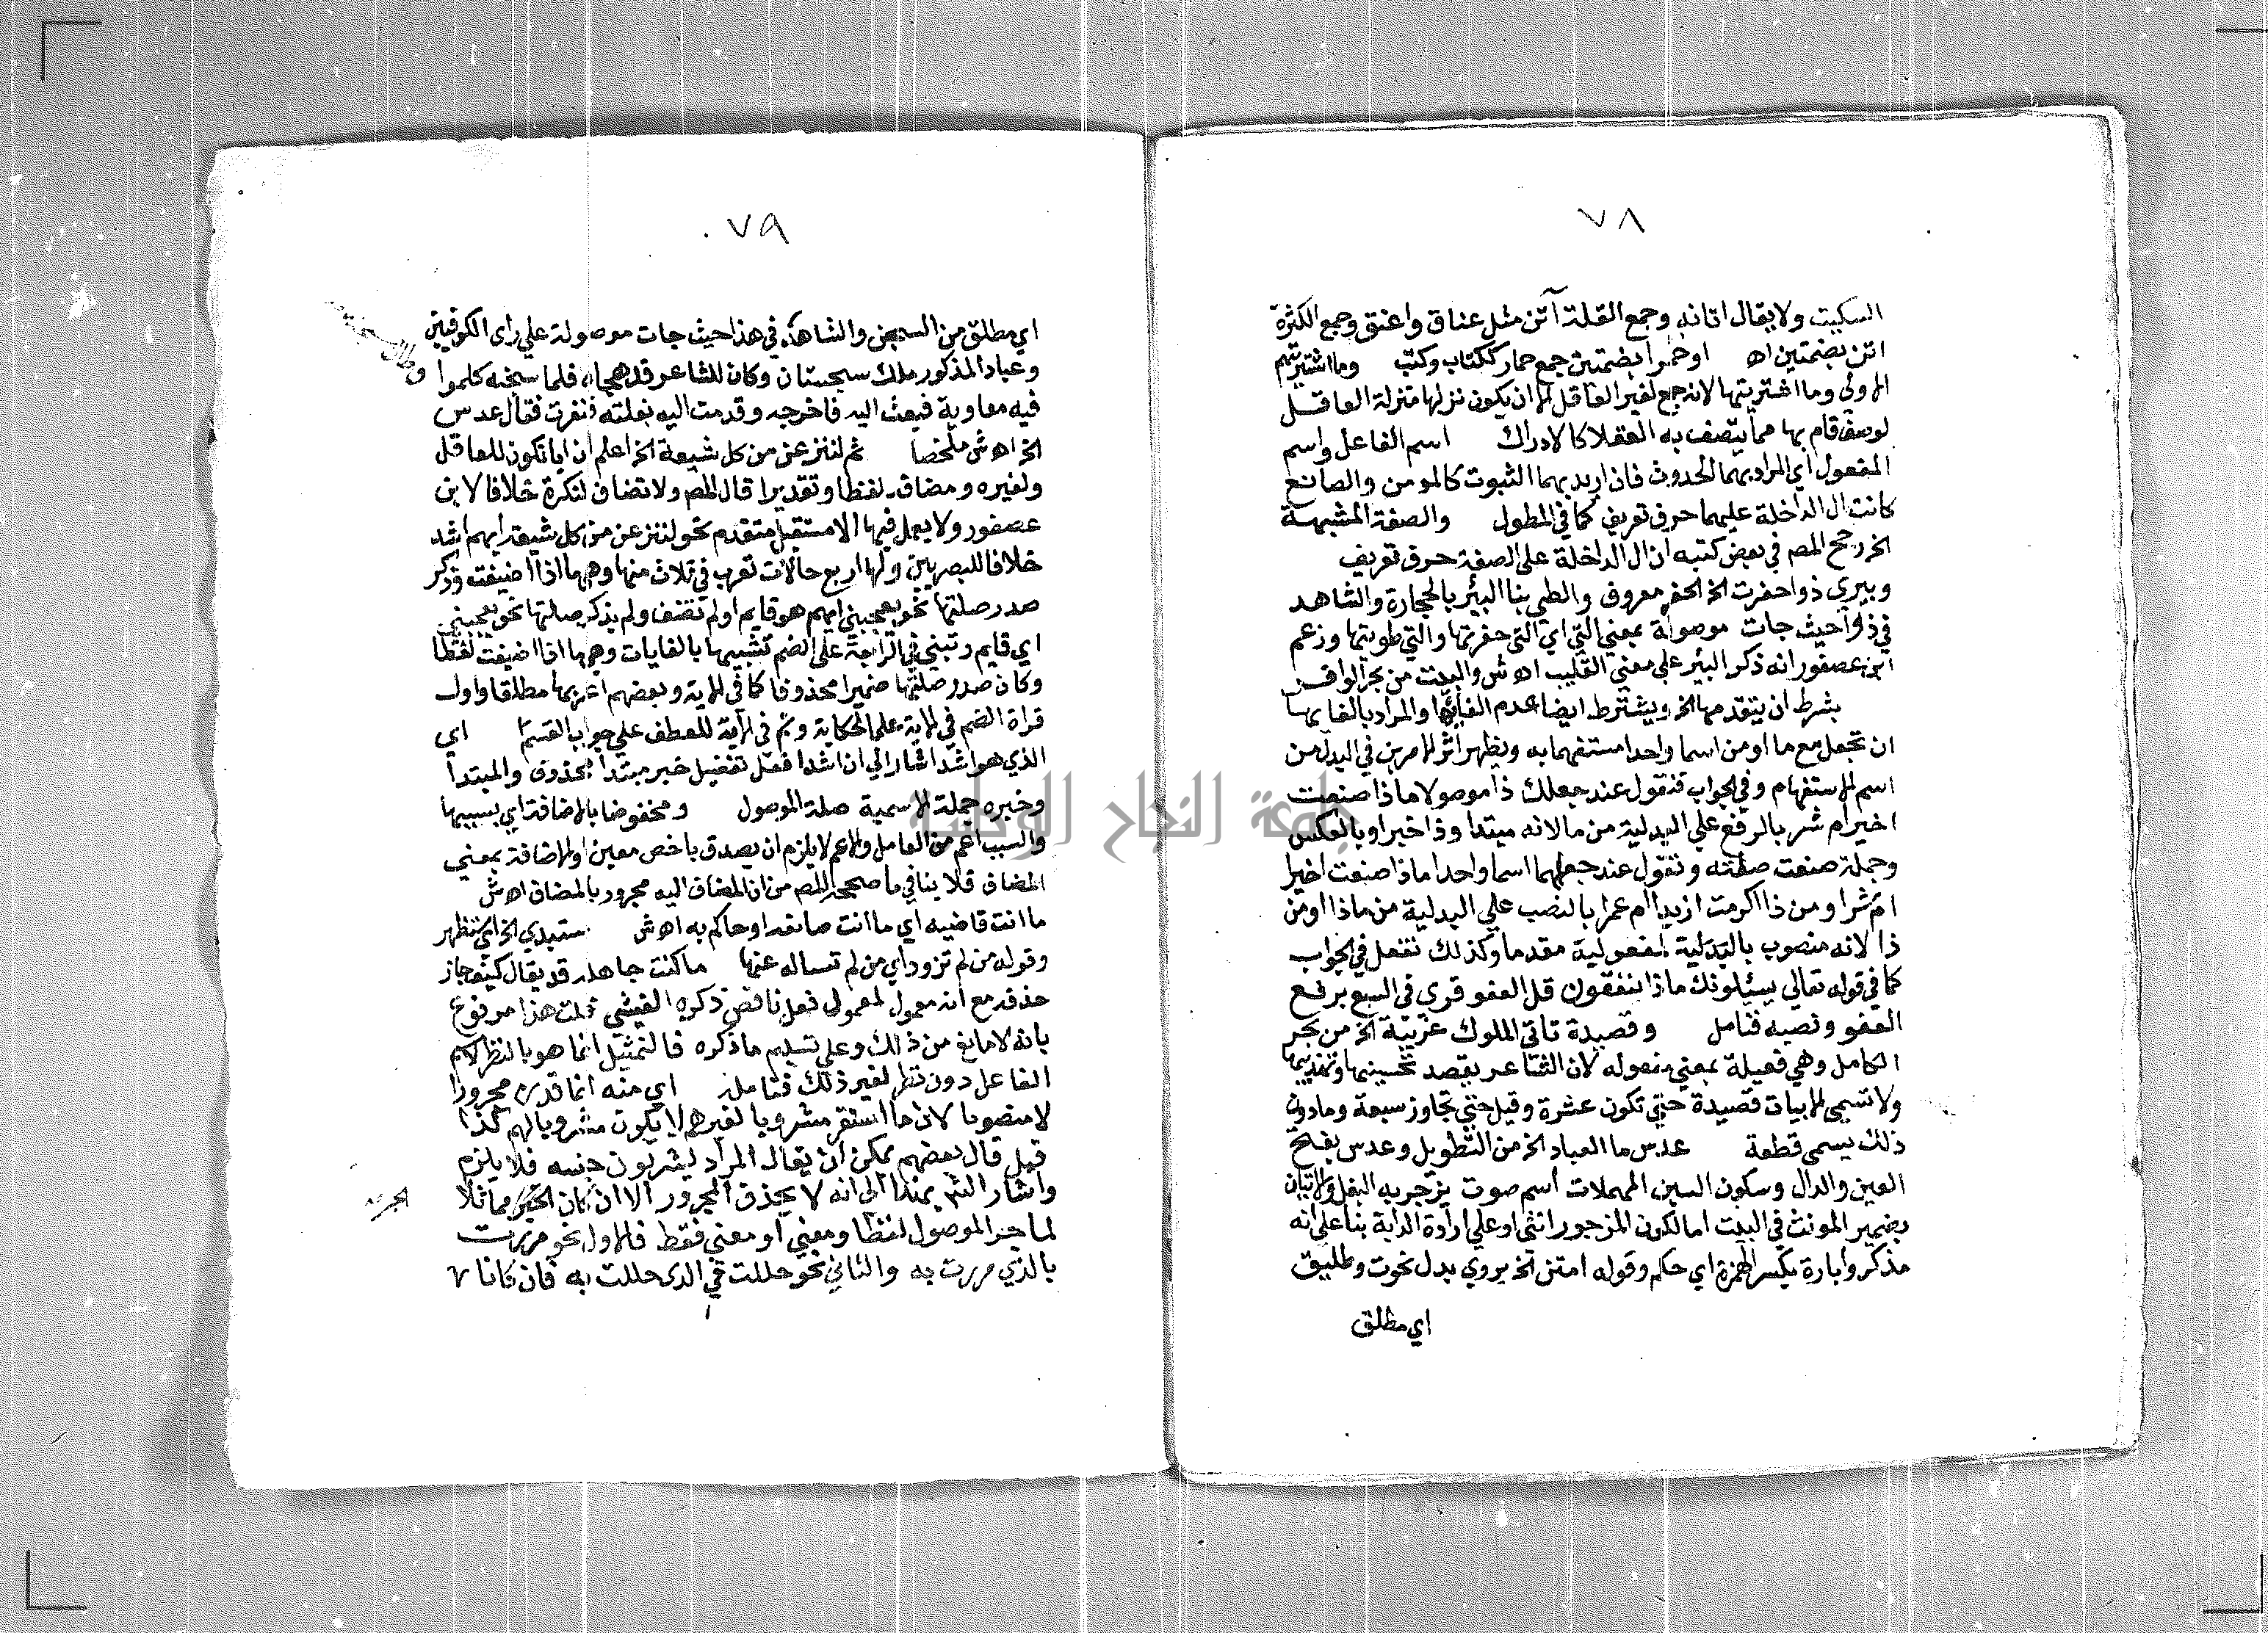 ٧٨
السكيت ولا يقال اتانه وجمع القلة آتن مثل عناق واعنق وجمع الكثرة
اتن بضمتين اه اوحمرا بضمتين جمع حمار ككتاب وكتب وما اشتريتهم
الاولى وما اشتريتها لانه جمع لغير العاقل الا ان يكون نزلها منزلة العاقل
لوصف قام بها مما يتصف به العقلا كالادراك اسم الفاعل واسم
المفعول اي المراد بهما الحدوث فان اريد بهما الثبوت كالمومن والصانع
كانت ال الداخلة عليهما حرف تعريف كما في المطول والصفة المشبهة
الخ رجح المص في بعض كتبه ان ال الداخلة على الصفة حرف تعريف
وبيري ذو احفرت الخ الحفر معروف والطي بنا البئر بالحجارة والشاهد
في ذو حيث جات موصولة بمعني التي اي التي حفرتها والتي طويتها وزعم
ابن عصفور انه ذكر البئر علي معني القليب اه ش والبيت من بحر الوافر
بشرط ان يتقدمها الخ ويشترط ايضا عدم الغائها والمراد بالغايها
ان تجعل مع ما او من اسما واحدا مستفهما به ويظهر اثر الامرين في البدل من
اسم الاستفهام وفي الجواب فتقول عند جعلك ذا موصولا ماذا صنعت
اخير ام شر بالرفع علي البدلية من ما لانه مبتدا وذا خبر او بالعكس
وجملة صنعت صلته وتقول عند جعلهما اسما واحدا ماذا صنعت اخيرا
ام شرا ومن ذا اكرمت ازيدا ام عمرا بالنصب علي البدلية من ماذا او من
ذا لانه منصوب بالبدلية لمفعولية مقدما وكذلك تفعل في الجواب
كما في قوله تعالي يسئلونك ماذا ينفقون قل العفو قري في السبع برفع
العفو ونصبه فتامل وقصيدة تاتي الملوك غريبة الخ من بحر
الكامل وهي فعيلة بمعني مفعوله لان الشاعر يقصد تحسينها وتهذيبها
ولا تسمي الابيات قصيدة حتي تكون عشرة وقيل حتي تجاوز سبعة ومادون
ذلك يسمي قطعة عدس ما العباد الخ من الطويل وعدس بفتح
العين والدال وسكون السين المهملات اسم صوت يزجر به البغل والاتيان
بضمير المونث في البيت اما لكون المزجور انثي او علي ارادة الدابة بنا علي انه
مذكر وابارة بكسر الهمزة اي حكم وقوله امتن الخ يروي بدل نجوت وطليق
اي مطلق
٧٩
اي مطلق من السجن والشاهد في هذا حيث جات موصولة علي راي الكوفيين
وعباد المذكور ملك سجستان وكان للشاعر قد هجاه فلما سجنه كلموا
فيه معاوية فبعث اليه فاخرجه وقدمت اليه بغلته فنفرت فقال عدس
الخ اه ش ملخصا ثم لننزعن من كل شيعة الخ اعلم ان ايا تكون للعاقل
ولغيره ومضاف لفظا وتقديرا قال المص ولا تضاف لنكرة خلافا لابن
عصفور ولا يعمل فيها الا مستقبل متقدم نحو لننزعن من كل شيعة ايهم اشد
خلافا للبصريين ولها اربع حالات تعرب في ثلاث منها وهي ما اذا اضيفت وذكر
صدر صلتها نحو يعجبني ايهم هو قايم او لم تضف ولم يذكر صلتها نحو يعجبني
اي قايم وتبني في الرابعة علي الضم تشبيها بالغايات وهي ما اذا اضيفت لفظا
وكان صدر صلتها ضميرا محذوفا كما في الاية وبعضهم اعربها مطلقا واول
قراة الضم في الاية علي الحكاية وثم في الاية للعطف علي جواب القسم اي
الذي هو اشد اشار الي ان اشد افعل تفضيل خبر مبتدا محذوف والمبتدا
وخبره جملة الاسمية صلة الموصول ومخفوضا بالاضافة اي بسببها
والسبب اعم من العامل والاعم لا يلزم ان يصدق باخص معين او الاضافة بمعني
المضاف فلا ينافي ما صححه المص من ان المضاف اليه مجرور بالمضاف اه ش
ما انت قاضيه اي ما انت صانعه او حاكم به اه ش ستبدي الخ اي ستظهر
وقوله من لم تزود اي من لم تساله عنها ما كنت جاهله قد يقال كيف جاز
حذفه مع انه معمول لمعمول فعل ناقص ذكره الفيشي قلت هذا مرفوع
بانه لا مانع من ذلك وعلي تسليم ما ذكره فالتمثيل انما هو بالنظر لاسم
الفاعل دون نظر لغير ذلك فتامله اي منه انما قدره مجرورا
لا منصوبا لان ما استقر مشروبا لغيرهم لا يكون مشروبا لهم كذا
قيل قال بعضهم يمكن ان يقال المراد يشربون جنسه فلا يلزم
واشار الش بهذا الي انه لا يحذف المجرور الا ان كان الجر مماثلا
لما جر الموصول لفظا ومعني او معني فقط فالاول نحو مررت
بالذي مررت به والثاني نحو حللت في الذي حللت به فان كانا
جامعة النجاح الوطنية